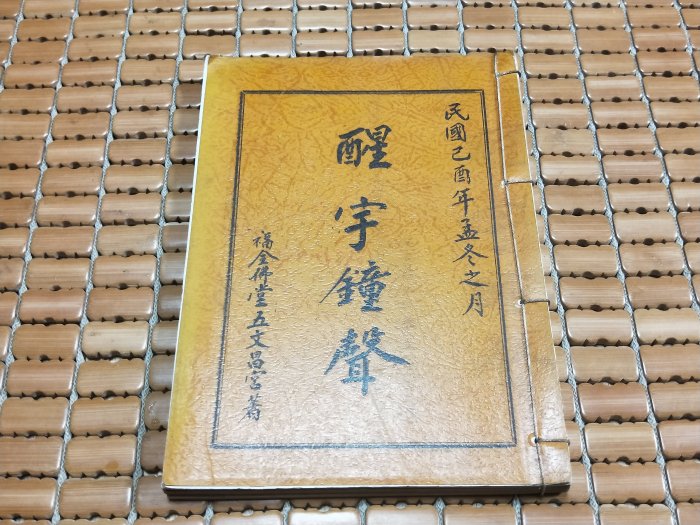 民國己酉年孟冬之月
醒宇鐘聲
福全佛堂五文昌宮著